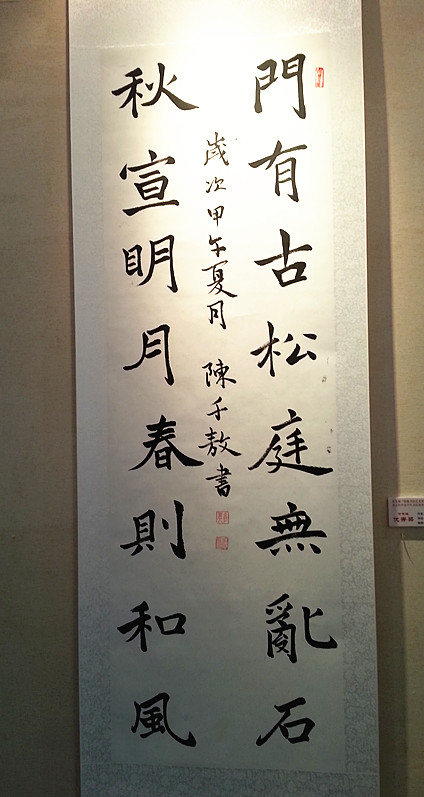 門有古松庭無亂石
秋宣明月春則和風
歲次甲午夏月 陳千敖書